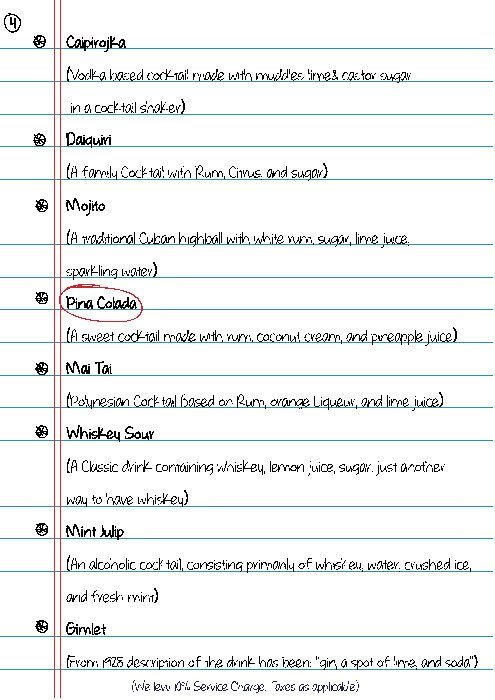 4
Caipirojka
(Vodka based cocktail made with muddles lime & castor sugar
in a cocktail shaker)
Daiquiri
(A family Cocktail with Rum, Citrus and sugar)
Mojito
(A traditional Cuban highball with white rum, sugar, lime juice,
sparkling water)
Pina Colada
(A sweet cocktail made with rum, coconut cream, and pineapple juice)
Mai Tai
(Polynesian Cocktail Based on Rum, orange Liqueur, and lime juice)
Whiskey Sour
(A Classic drink containing whiskey, lemon juice, sugar. just another
way to have whiskey)
Mint Julip
(An alcoholic cocktail, consisting primarily of whiskey, water, crushed ice,
and fresh mint)
Gimlet
(From 1928 description of the drink has been: "gin, a spot of lime, and soda")
(We levy 10% Service Charge. Taxes as applicable)